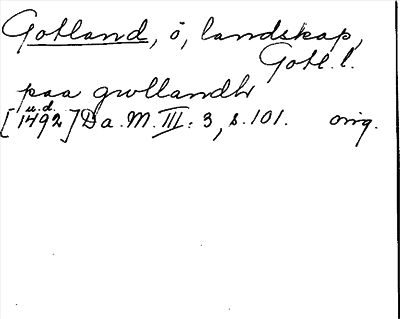 Gotland, ö, landskap,
Gotl. l.
paa gwllandh
u.d.
[1492] Da. M. III: 3, s. 101. orig.